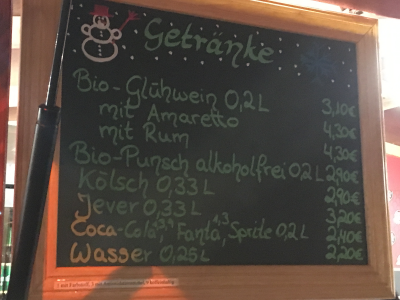 Getränke
Bio-Glühwein 0,2L 3,10€
mit Amaretto 4,30€
mit Rum 4,30€
Bio-Punsch alkoholfrei 0,2L 2,90€
Kölsch 0,33L 2,90€
Jever 0,33L 3,20€
Coca-Cola, Fanta, Sprite 0,2L 2,40€
Wasser 0,25L 2,20€